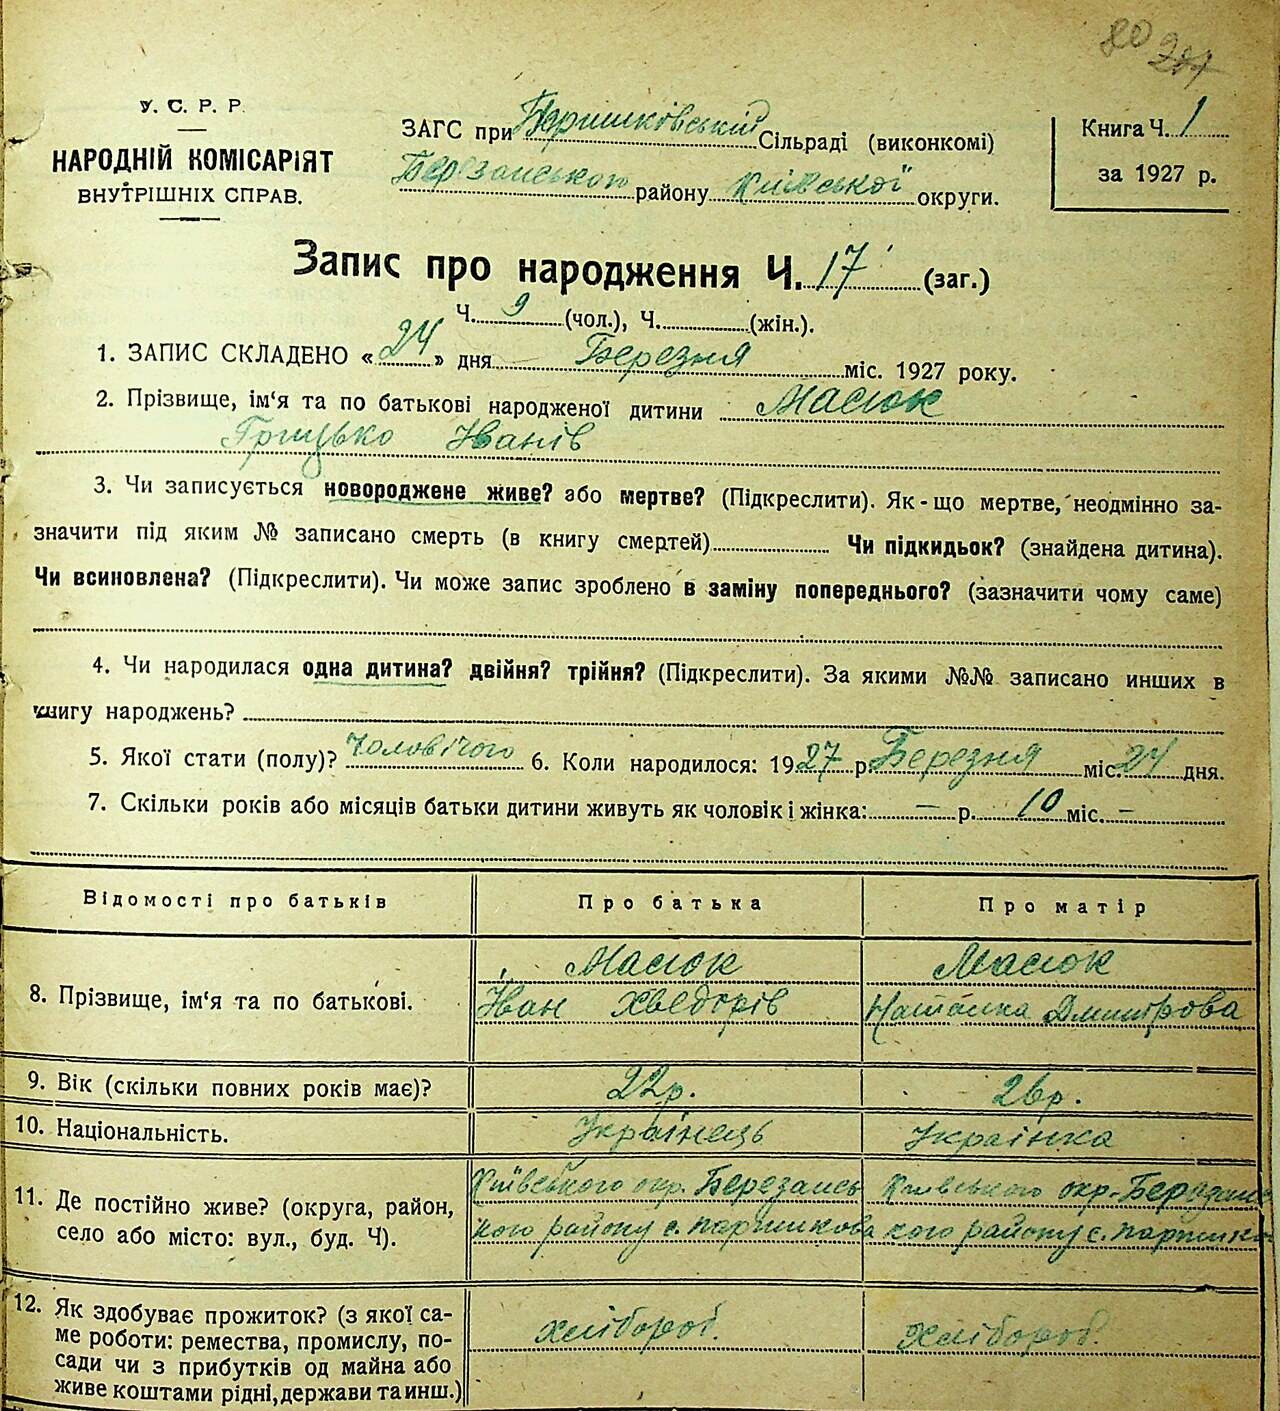 80 277
У. С. Р. Р.
НАРОДНІЙ КОМІСАРІЯТ
ВНУТРІШНІХ СПРАВ.
ЗАГС при Паришківській Сільраді (виконкомі)
Березанського району Київської округи.
Книга Ч. 1
за 1927 р.
Запис про народження Ч. 17 (заг.)
Ч. 9 (чол.), Ч. (жін.).
1. ЗАПИС СКЛАДЕНО « 24 » дня Березня міс. 1927 року.
2. Прізвище, ім‘я та по батькові народженої дитини Масюк
Грицько Іванів
3. Чи записується новороджене живе? або мертве? (Підкреслити). Як-що мертве, неодмінно за-
значити під яким № записано смерть (в книгу смертей) Чи підкидьок? (знайдена дитина).
Чи всиновлена? (Підкреслити). Чи може запис зроблено в заміну попереднього? (зазначити чому саме)
4. Чи народилася одна дитина? двійня? трійня? (Підкреслити). За якими №№ записано инших в
книгу народжень?
5. Якої стати (полу)? Чоловічого 6. Коли народилося: 1927 р. Березня міс. 24 дня.
7. Скільки років або місяців батьки дитини живуть як чоловік і жінка: — р. 10 міс. —
Відомості про батьків Про батька Про матір
8. Прізвище, ім‘я та по батькові.
Масюк Масюк
Іван Хведорів Наталка Дмитрова
9. Вік (скільки повних років має)? 22р. 26р.
10. Національність. Українець Українка
11. Де постійно живе? (округа, район,
село або місто: вул., буд. Ч).
Київського окр. Березансь Київського окр. Березансь
кого району с. паришкова кого району с. паришко
12. Як здобуває прожиток? (з якої са-
ме роботи: ремества, промислу, по-
сади чи з прибутків од майна або
живе коштами рідні, держави та инш.)
хлібороб. хлібороб.